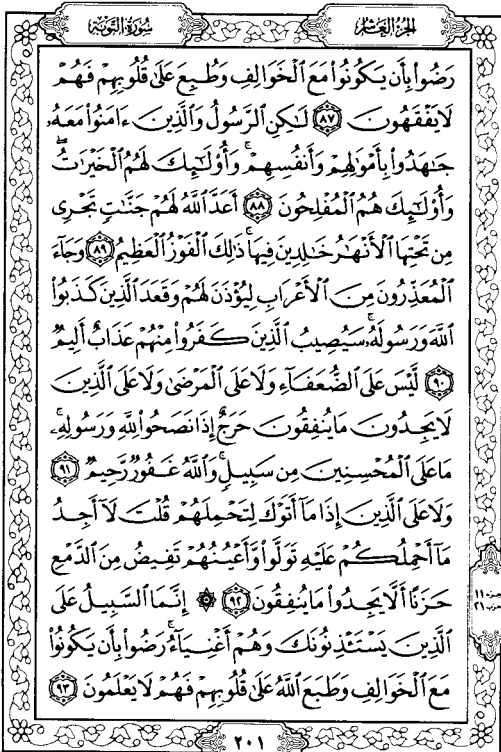 سورة التوبة الجزء العاشر
رَضُوا۟ بِأَن يَكُونُوا۟ مَعَ ٱلْخَوَالِفِ وَطُبِعَ عَلَىٰ قُلُوبِهِمْ فَهُمْ
لَا يَفْقَهُونَ ٨٧ لَـٰكِنِ ٱلرَّسُولُ وَٱلَّذِينَ ءَامَنُوا۟ مَعَهُۥ
جَـٰهَدُوا۟ بِأَمْوَٰلِهِمْ وَأَنفُسِهِمْ ۚ وَأُو۟لَـٰٓئِكَ لَهُمُ ٱلْخَيْرَٰتُ ۖ
وَأُو۟لَـٰٓئِكَ هُمُ ٱلْمُفْلِحُونَ ٨٨ أَعَدَّ ٱللَّهُ لَهُمْ جَنَّـٰتٍ تَجْرِى
مِن تَحْتِهَا ٱلْأَنْهَـٰرُ خَـٰلِدِينَ فِيهَا ۚ ذَٰلِكَ ٱلْفَوْزُ ٱلْعَظِيمُ ٨٩ وَجَآءَ
ٱلْمُعَذِّرُونَ مِنَ ٱلْأَعْرَابِ لِيُؤْذَنَ لَهُمْ وَقَعَدَ ٱلَّذِينَ كَذَبُوا۟
ٱللَّهَ وَرَسُولَهُۥ ۚ سَيُصِيبُ ٱلَّذِينَ كَفَرُوا۟ مِنْهُمْ عَذَابٌ أَلِيمٌ
٩٠ لَّيْسَ عَلَى ٱلضُّعَفَآءِ وَلَا عَلَى ٱلْمَرْضَىٰ وَلَا عَلَى ٱلَّذِينَ
لَا يَجِدُونَ مَا يُنفِقُونَ حَرَجٌ إِذَا نَصَحُوا۟ لِلَّهِ وَرَسُولِهِۦ ۚ
مَا عَلَى ٱلْمُحْسِنِينَ مِن سَبِيلٍ ۚ وَٱللَّهُ غَفُورٌ رَّحِيمٌ ٩١
وَلَا عَلَى ٱلَّذِينَ إِذَا مَآ أَتَوْكَ لِتَحْمِلَهُمْ قُلْتَ لَآ أَجِدُ
مَآ أَحْمِلُكُمْ عَلَيْهِ تَوَلَّوا۟ وَّأَعْيُنُهُمْ تَفِيضُ مِنَ ٱلدَّمْعِ
حَزَنًا أَلَّا يَجِدُوا۟ مَا يُنفِقُونَ ٩٢ ۞ إِنَّمَا ٱلسَّبِيلُ عَلَى
ٱلَّذِينَ يَسْتَـْٔذِنُونَكَ وَهُمْ أَغْنِيَآءُ ۚ رَضُوا۟ بِأَن يَكُونُوا۟
مَعَ ٱلْخَوَالِفِ وَطَبَعَ ٱللَّهُ عَلَىٰ قُلُوبِهِمْ فَهُمْ لَا يَعْلَمُونَ ٩٣
جزء ١١
حزب ٢١
٢٠١